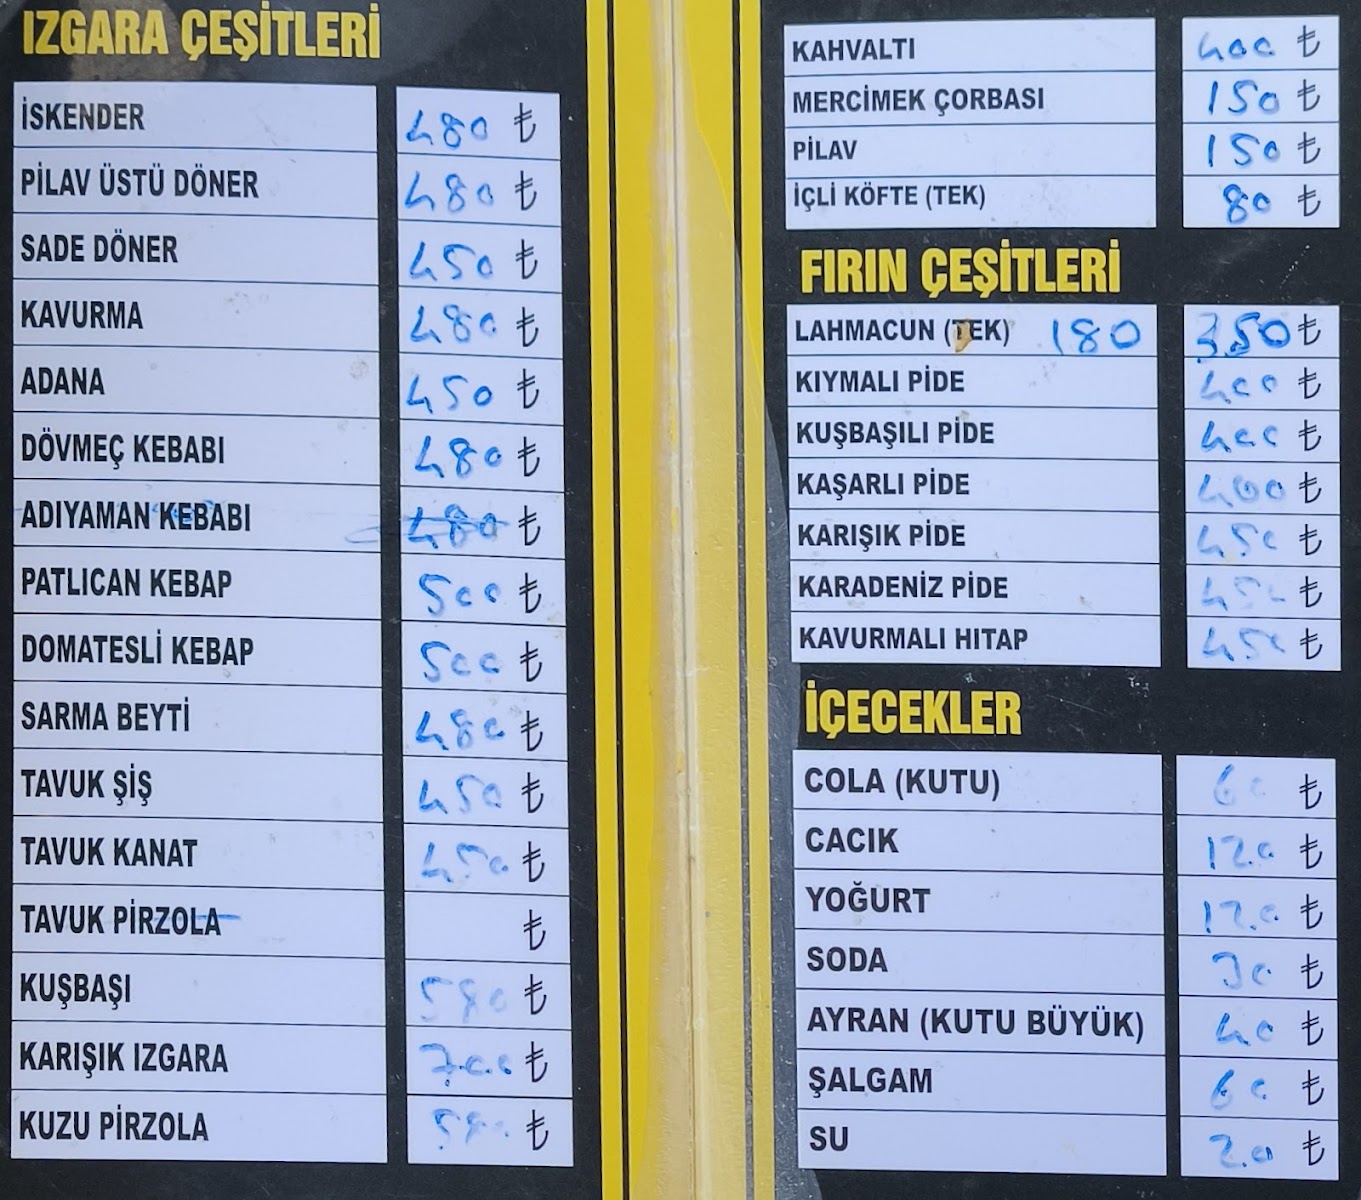 IZGARA ÇEŞİTLERİ
İSKENDER 480 ₺
PİLAV ÜSTÜ DÖNER 480 ₺
SADE DÖNER 450 ₺
KAVURMA 480 ₺
ADANA 450 ₺
DÖVMEÇ KEBABI 480 ₺
ADIYAMAN KEBABI 480 ₺
PATLICAN KEBAP 500 ₺
DOMATESLİ KEBAP 500 ₺
SARMA BEYTİ 480 ₺
TAVUK ŞİŞ 450 ₺
TAVUK KANAT 450 ₺
TAVUK PİRZOLA ₺
KUŞBAŞI 580 ₺
KARIŞIK IZGARA 700 ₺
KUZU PİRZOLA 580 ₺
KAHVALTI 400 ₺
MERCİMEK ÇORBASI 150 ₺
PİLAV 150 ₺
İÇLİ KÖFTE (TEK) 80 ₺
FIRIN ÇEŞİTLERİ
LAHMACUN (TEK) 180 350 ₺
KIYMALI PİDE 400 ₺
KUŞBAŞILI PİDE 400 ₺
KAŞARLI PİDE 400 ₺
KARIŞIK PİDE 450 ₺
KARADENİZ PİDE 450 ₺
KAVURMALI HITAP 450 ₺
İÇECEKLER
COLA (KUTU) 60 ₺
CACIK 120 ₺
YOĞURT 120 ₺
SODA 30 ₺
AYRAN (KUTU BÜYÜK) 40 ₺
ŞALGAM 60 ₺
SU 20 ₺